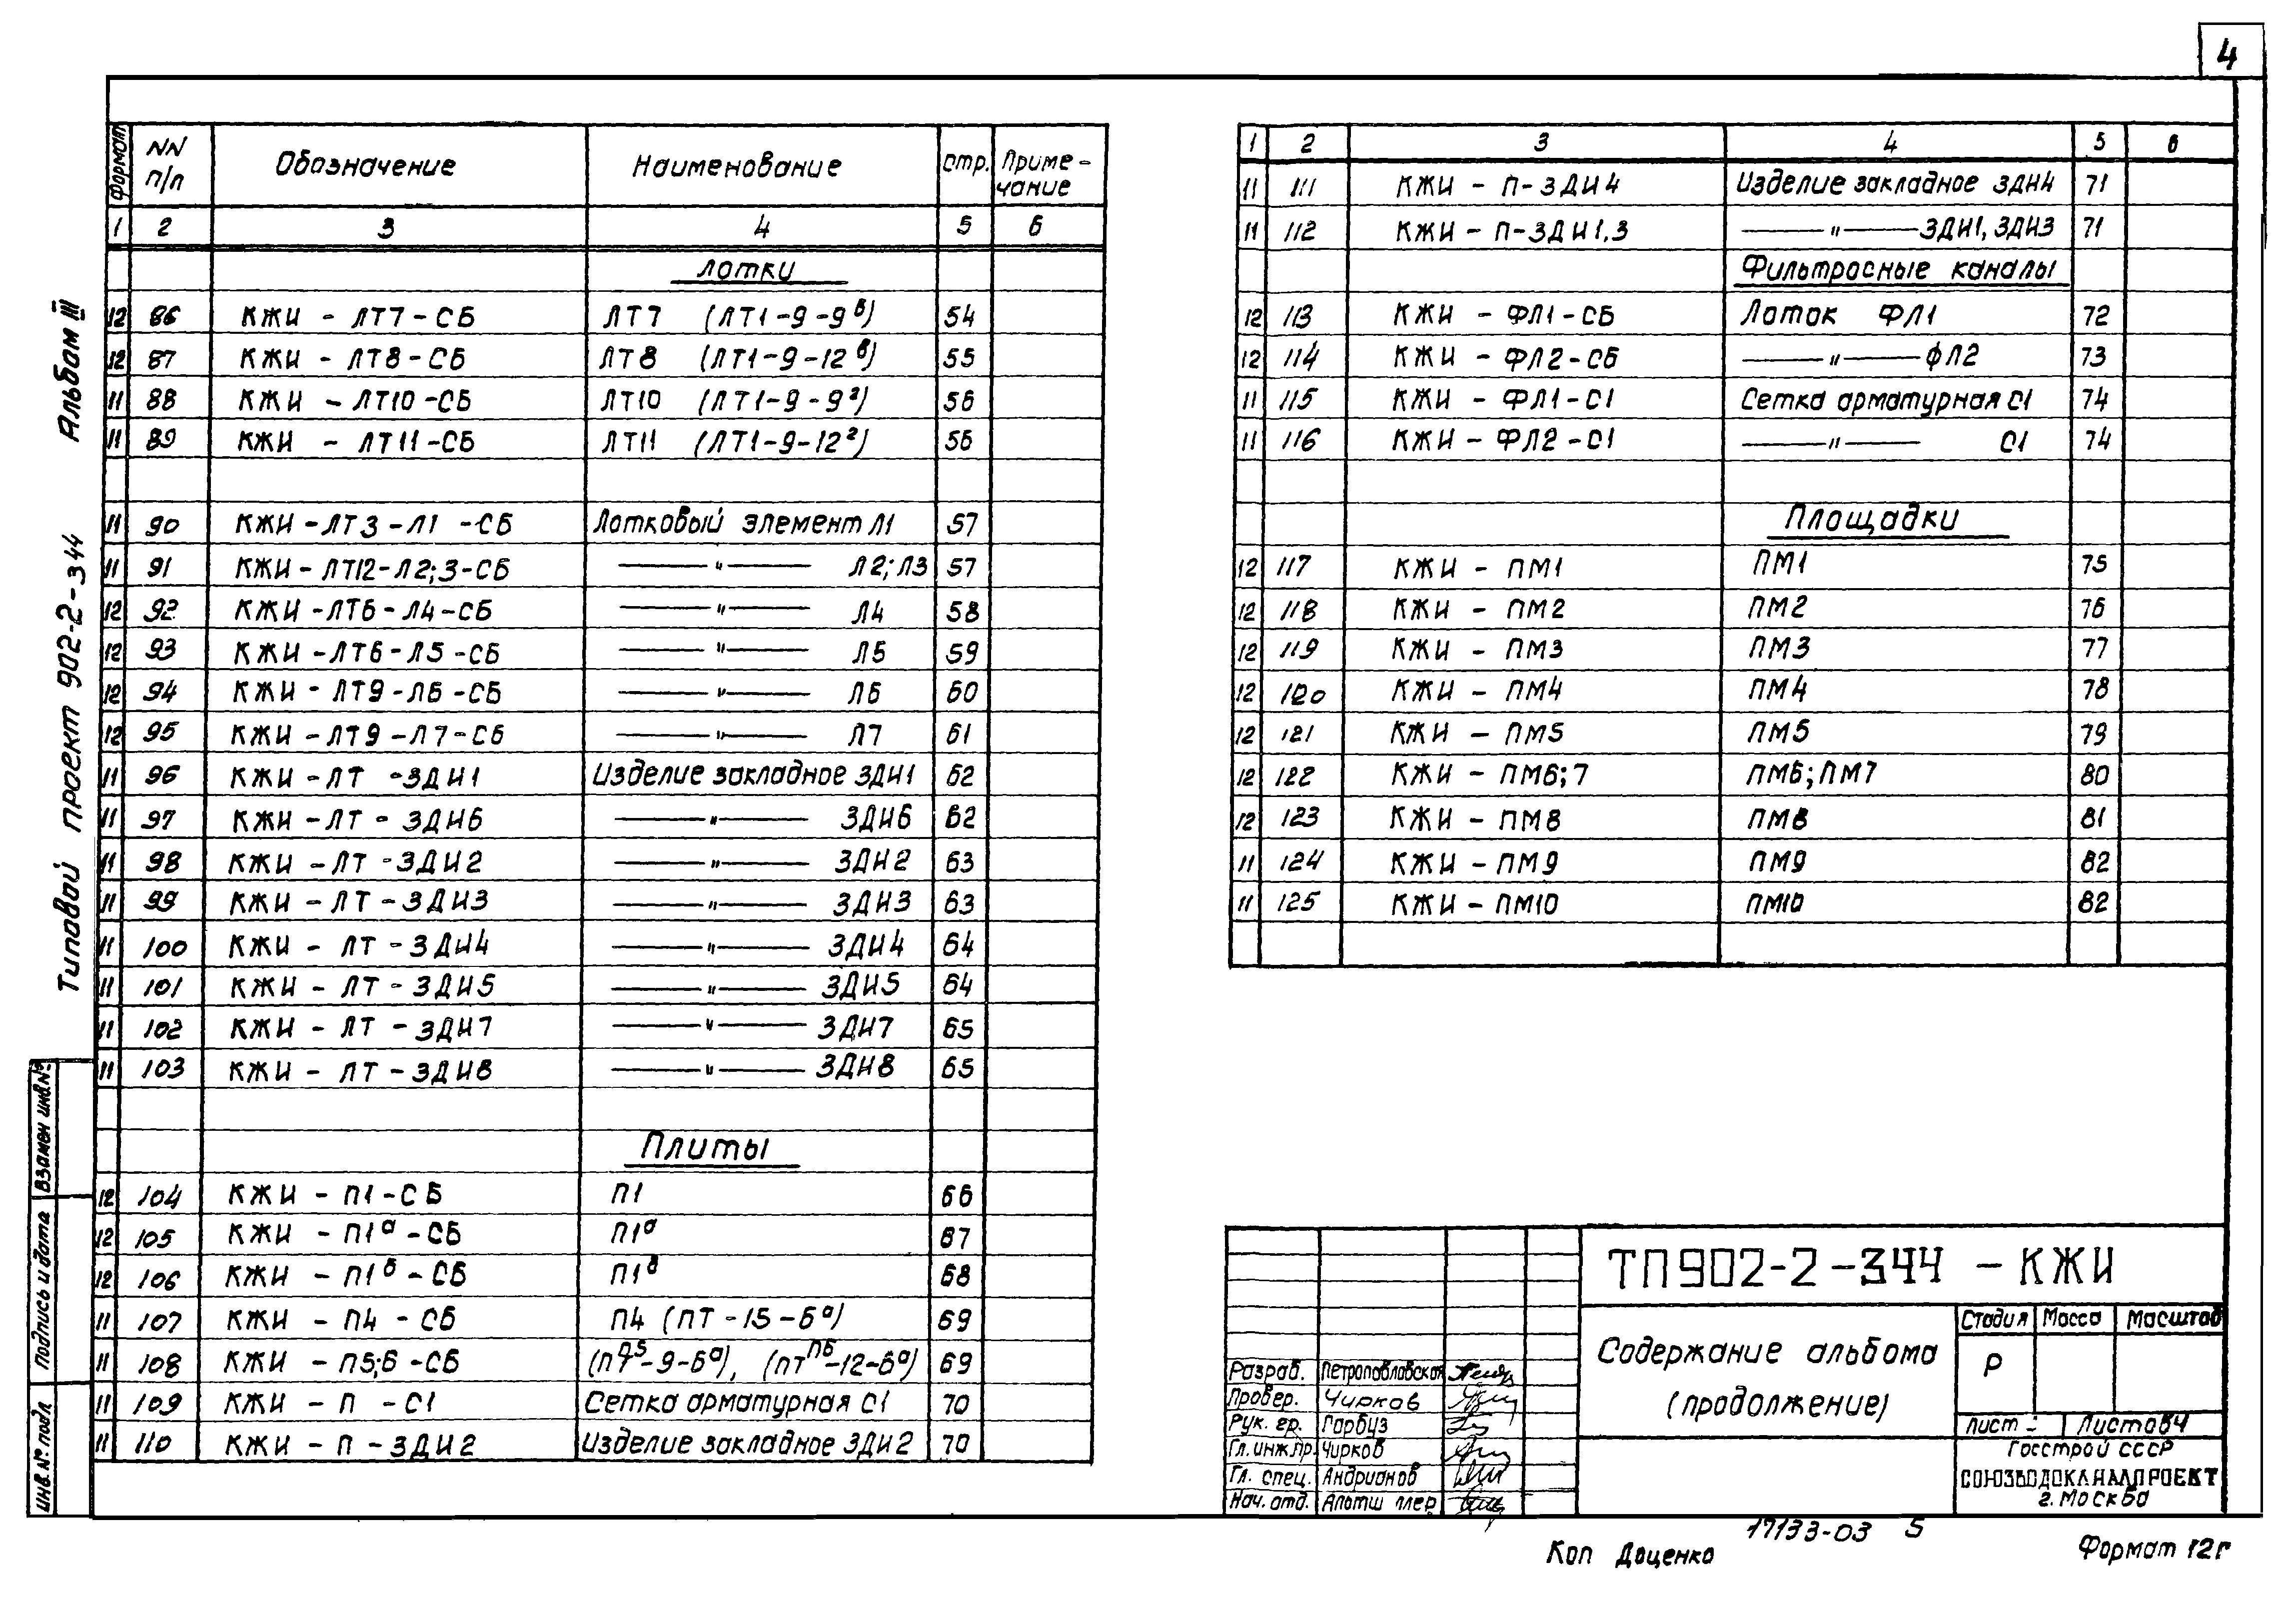 4
Типовой проект 902-2-344 Альбом III
Формат NN п/п Обозначение Наименование Стр. Приме-чание
1 2 3 4 5 6
Лотки
12 86 КЖИ - ЛТ7-СБ ЛТ7 (ЛТ1-9-9в) 54
12 87 КЖИ - ЛТ8-СБ ЛТ8 (ЛТ1-9-12в) 55
11 88 КЖИ - ЛТ10-СБ ЛТ10 (ЛТ1-9-9г) 56
11 89 КЖИ - ЛТ11-СБ ЛТ11 (ЛТ1-9-12г) 56
11 90 КЖИ-ЛТ3-Л1-СБ Лотковый элемент Л1 57
11 91 КЖИ-ЛТ12-Л2;3-СБ —"— Л2; Л3 57
12 92 КЖИ-ЛТ6-Л4-СБ —"— Л4 58
12 93 КЖИ-ЛТ6-Л5-СБ —"— Л5 59
12 94 КЖИ-ЛТ9-Л6-СБ —"— Л6 60
12 95 КЖИ-ЛТ9-Л7-СБ —"— Л7 61
11 96 КЖИ-ЛТ-ЗДИ1 Изделие закладное ЗДИ1 62
11 97 КЖИ-ЛТ-ЗДИ6 —"— ЗДИ6 62
11 98 КЖИ-ЛТ-ЗДИ2 —"— ЗДИ2 63
11 99 КЖИ-ЛТ-ЗДИ3 —"— ЗДИ3 63
11 100 КЖИ-ЛТ-ЗДИ4 —"— ЗДИ4 64
11 101 КЖИ-ЛТ-ЗДИ5 —"— ЗДИ5 64
11 102 КЖИ-ЛТ-ЗДИ7 —"— ЗДИ7 65
11 103 КЖИ-ЛТ-ЗДИ8 —"— ЗДИ8 65
Плиты
12 104 КЖИ - П1-СБ П1 66
12 105 КЖИ - П1а-СБ П1а 67
12 106 КЖИ - П1б-СБ П1в 68
11 107 КЖИ - П4-СБ П4 (ПТ-15-6а) 69
11 108 КЖИ - П5;6-СБ П5 (ПТ-9-6а), П6 (ПТ-12-6а) 69
11 109 КЖИ - П - С1 Сетка арматурная С1 70
11 110 КЖИ - П - ЗДИ2 Изделие закладное ЗДИ2 70
1 2 3 4 5 6
11 111 КЖИ - П-ЗДИ4 Изделие закладное ЗДИ4 71
11 112 КЖИ - П-ЗДИ1,3 —"— ЗДИ1, ЗДИ3 71
Фильтросные каналы
12 113 КЖИ - ФЛ1-СБ Лоток ФЛ1 72
12 114 КЖИ - ФЛ2-СБ —"— ФЛ2 73
11 115 КЖИ - ФЛ1-С1 Сетка арматурная С1 74
11 116 КЖИ - ФЛ2-С1 —"— С1 74
Площадки
12 117 КЖИ - ПМ1 ПМ1 75
12 118 КЖИ - ПМ2 ПМ2 76
12 119 КЖИ - ПМ3 ПМ3 77
12 120 КЖИ - ПМ4 ПМ4 78
12 121 КЖИ - ПМ5 ПМ5 79
12 122 КЖИ - ПМ6;7 ПМ6; ПМ7 80
12 123 КЖИ - ПМ8 ПМ8 81
11 124 КЖИ - ПМ9 ПМ9 82
11 125 КЖИ - ПМ10 ПМ10 82
Взамен инв.№
Подпись и дата
Инв.№ подл
ТП902-2-344 - КЖИ
Содержание альбома
(продолжение)
Стадия Масса Масштаб
Р
Лист - Листов 4
Госстрой СССР
СОЮЗВОДОКАНАЛПРОЕКТ
г. Москва
Разраб. Петропавловская
Провер. Чирков
Рук. гр. Гарбуз
Гл. инж.пр. Чирков
Гл. спец. Андрианов
Нач. отд. Альтшулер
17133-03 5
Коп Доценко Формат 12г